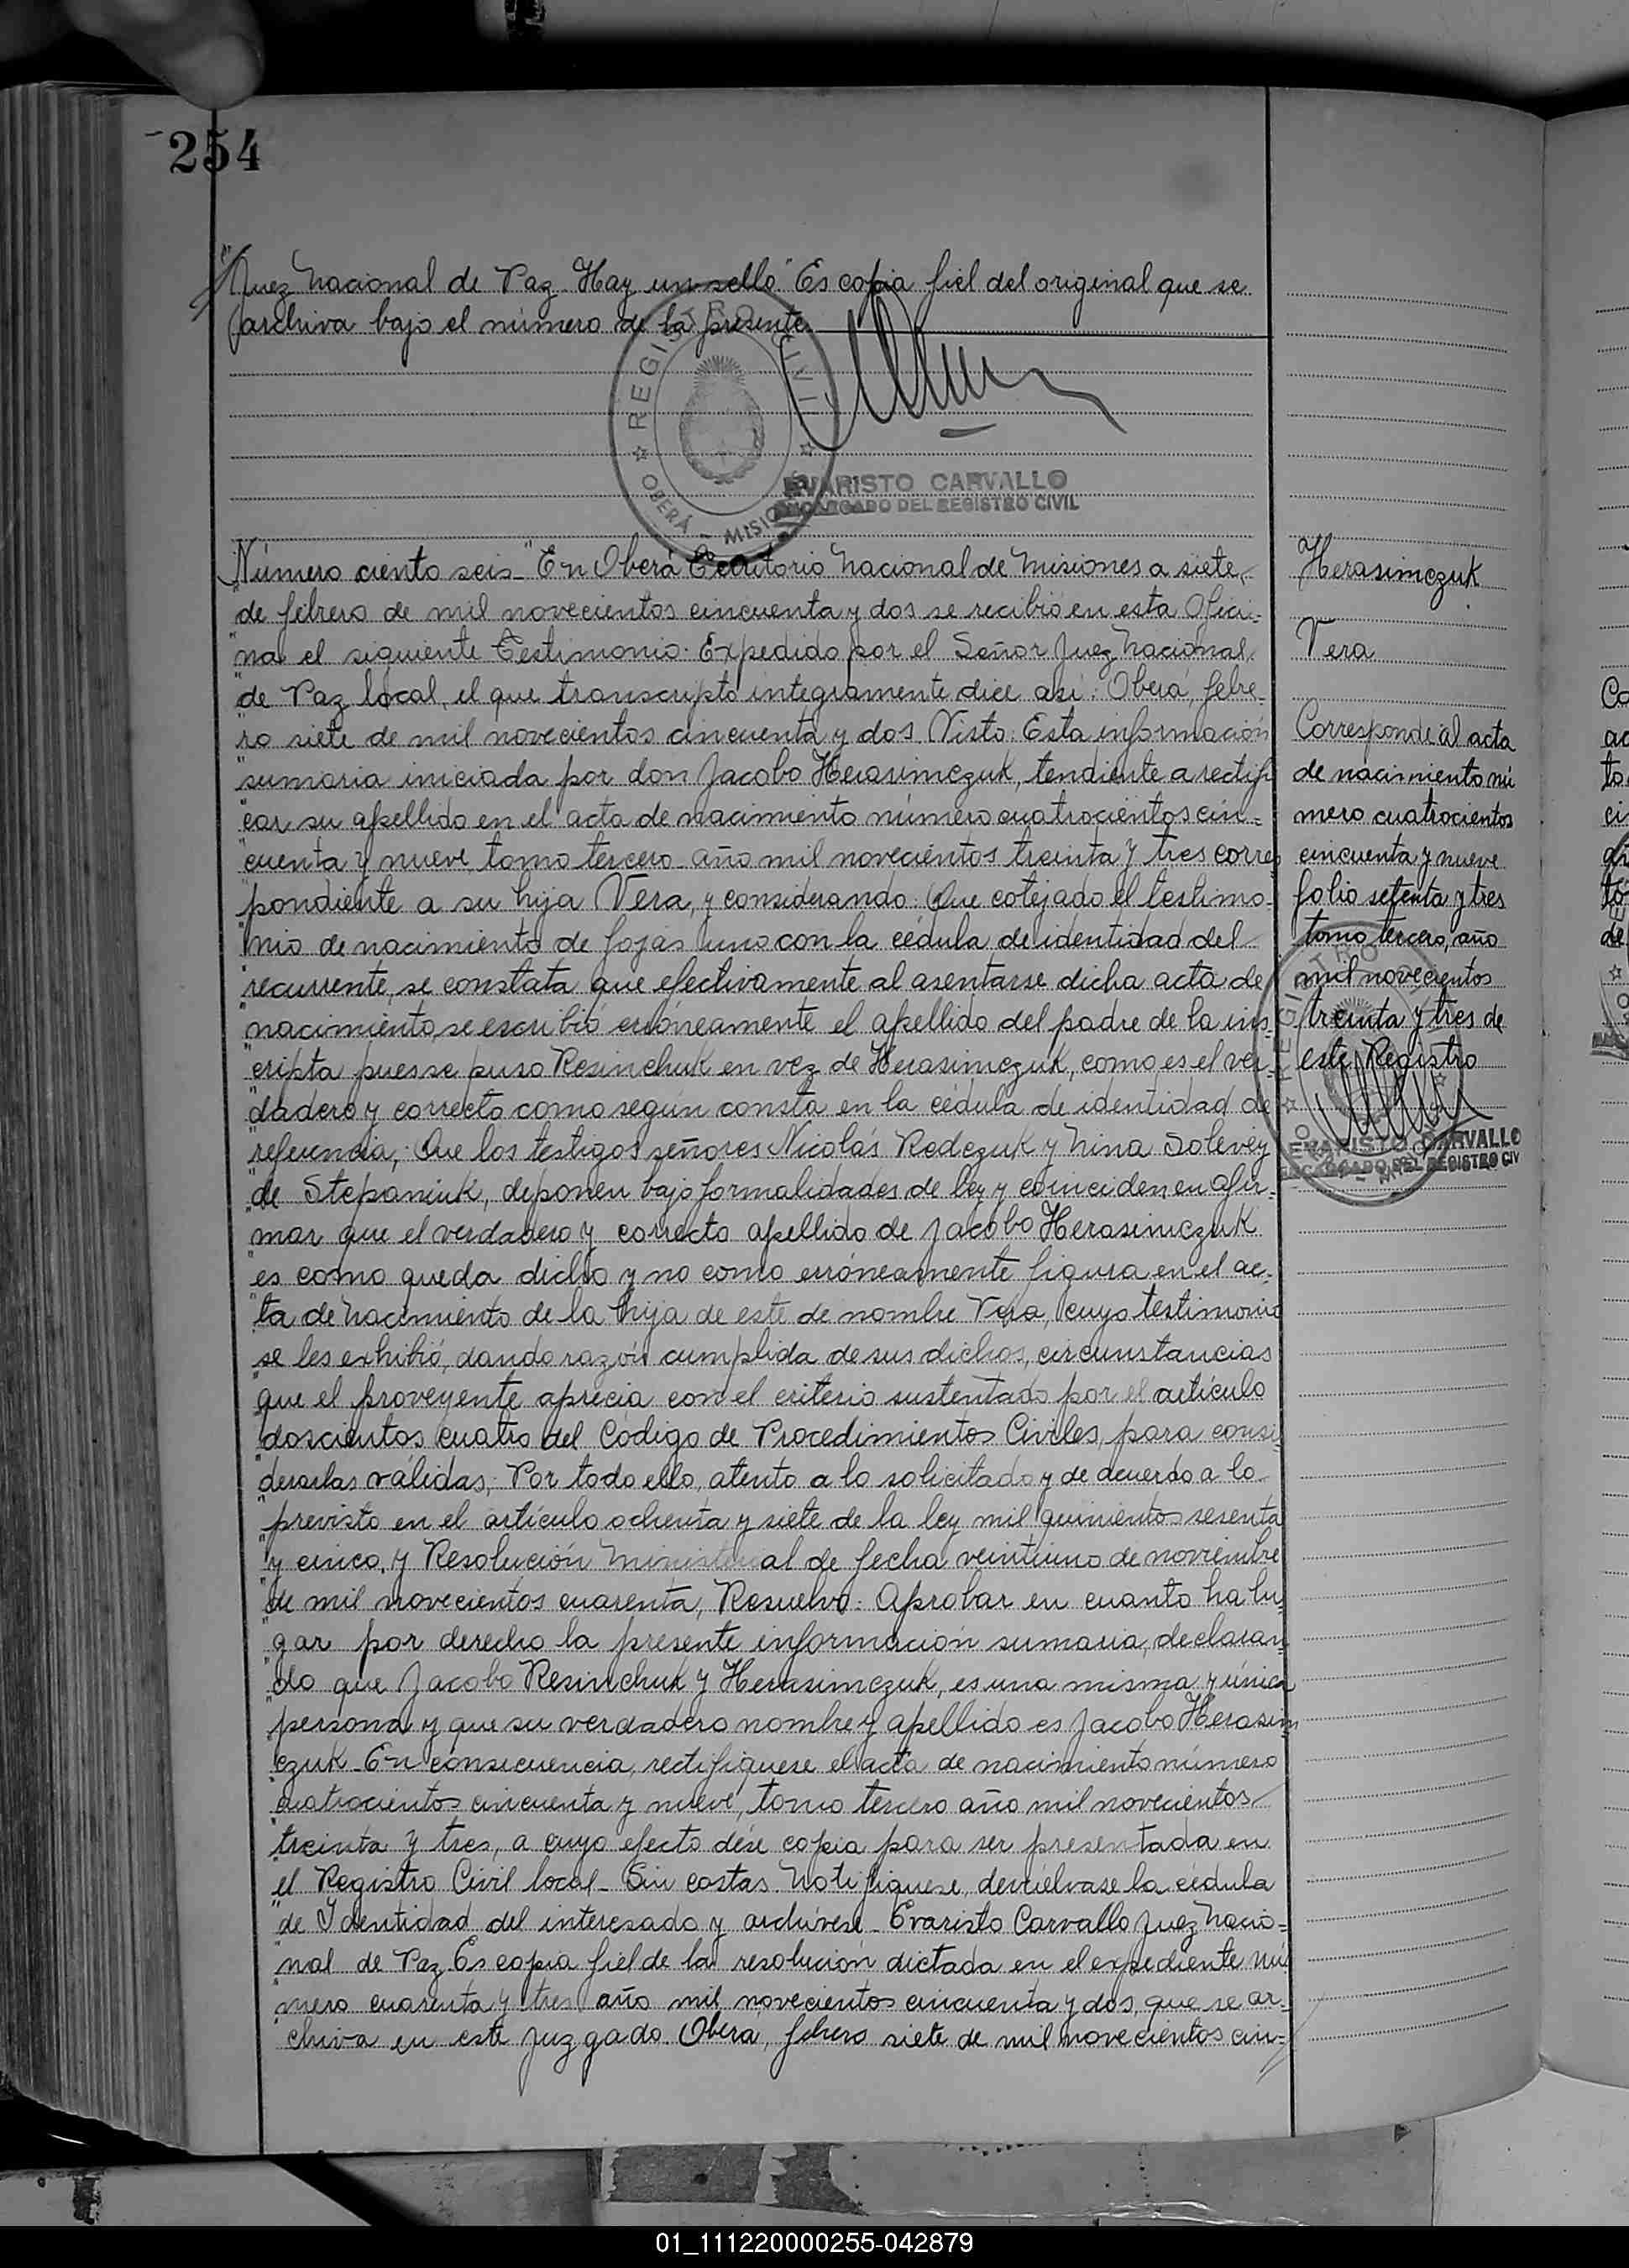 254
"Juez Nacional de Paz. Hay un sello" Es copia fiel del original que se
archiva bajo el número de la presente.
REGISTRO CIVIL
OBERÁ - MISIONES
EVARISTO CARVALLO
ENCARGADO DEL REGISTRO CIVIL
Número ciento seis - "En Oberá Territorio Nacional de Misiones a siete
"de febrero de mil novecientos cincuenta y dos se recibió en esta Ofici=
"na el siguiente Testimonio. Expedido por el Señor Juez Nacional
"de Paz local, el que transcripto integramente dice asi: Oberá, febre-
"ro siete de mil novecientos cincuenta y dos. Visto: Esta información
"sumaria iniciada por don Jacobo Herasimczuk, tendiente a rectifi
"car su apellido en el acta de nacimiento número cuatrocientos cin=
"cuenta y nueve, tomo tercero año mil novecientos treinta y tres corres
"pondiente a su hija Vera, y considerando: Que cotejado el testimo-
"nio de nacimiento de fojas uno con la cédula de identidad del
"recurrente, se constata que efectivamente al asentarse dicha acta de
"nacimiento, se escribió erróneamente el apellido del padre de la ins-
"cripta pues se puso Resinchuk en vez de Herasimczuk, como es el ver-
"dadero y correcto como según consta en la cédula de identidad de
"referencia; Que los testigos señores Nicolás Redczuk y Nina Solevey
"de Stepaniuk, deponen bajo formalidades de ley y coinciden en afir-
"mar que el verdadero y correcto apellido de Jacobo Herasimczuk
"es como queda dicho y no como erróneamente figura en el ac-
"ta de nacimiento de la hija de este de nombre Vera, cuyo testimonio
"se les exhibió, dando razón cumplida de sus dichos, circunstancias
"que el proveyente aprecia con el criterio sustentado por el artículo
"doscientos cuatro del Código de Procedimientos Civiles, para consi
"derarlas válidas; Por todo ello, atento a lo solicitado y de acuerdo a lo
"previsto en el artículo ochenta y siete de la ley mil quinientos sesenta
"y cinco, y Resolución Ministerial de fecha veintiuno de noviembre
"de mil novecientos cuarenta, Resuelvo: Aprobar en cuanto ha lu-
"gar por derecho la presente información sumaria, declaran
"do que Jacobo Resinchuk y Herasimczuk, es una misma y única
"persona y que su verdadero nombre y apellido es Jacobo Herasim
"czuk - En consecuencia, rectifíquese el acta de nacimiento número
"cuatrocientos cincuenta y nueve, tomo tercero año mil novecientos
"treinta y tres, a cuyo efecto dése copia para ser presentada en
"el Registro Civil local - Sin costas. Notifíquese, devuélvase la cédula
"de Identidad del interesado y archívese - Evaristo Carvallo Juez Nacio=
"nal de Paz. Es copia fiel de la resolución dictada en el expediente nú
"mero cuarenta y tres año mil novecientos cincuenta y dos, que se ar=
"chiva en este Juzgado. Oberá, febrero siete de mil novecientos cin=
Herasimczuk
Vera
Corresponde al acta
de nacimiento nú
mero cuatrocientos
cincuenta y nueve
folio setenta y tres
tomo tercero, año
mil novecientos
treinta y tres de
este Registro
EVARISTO CARVALLO
ENCARGADO DEL REGISTRO CIV
01_111220000255-042879